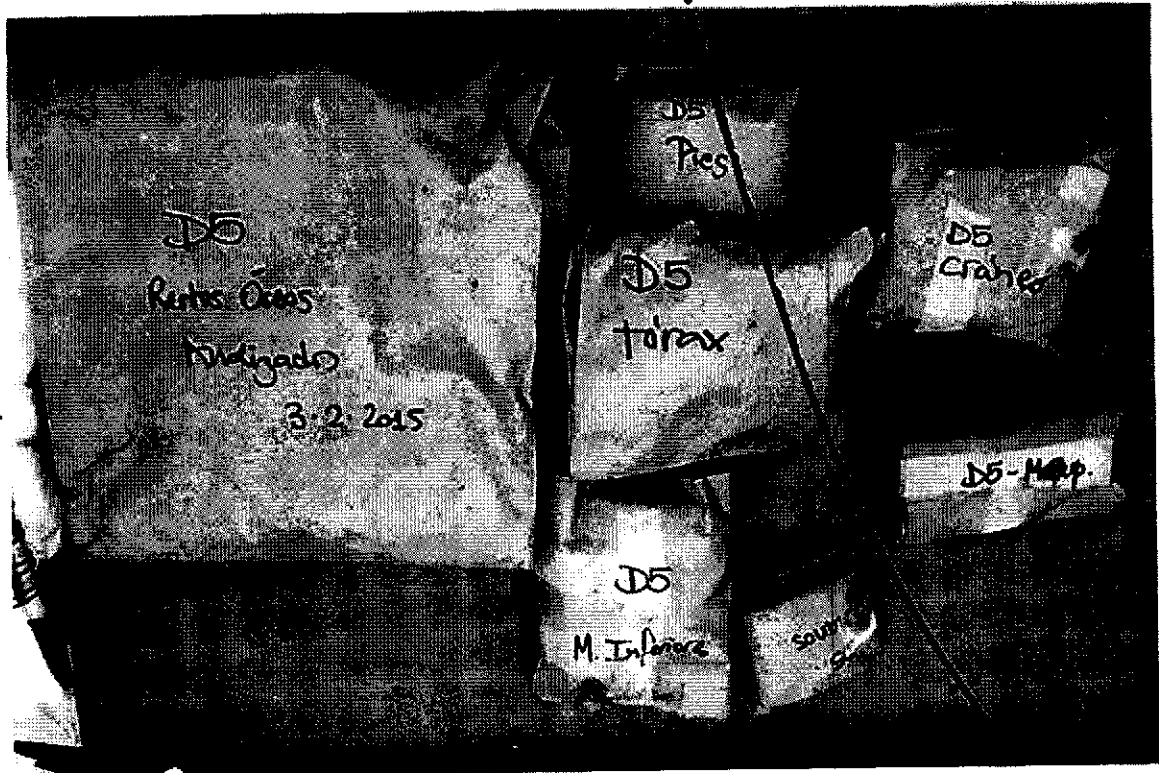 D5
Restos Óseos
Analizado
3.2.2015
D5
Pies
D5
tórax
D5
Cráneo
D5
M. Inferiores